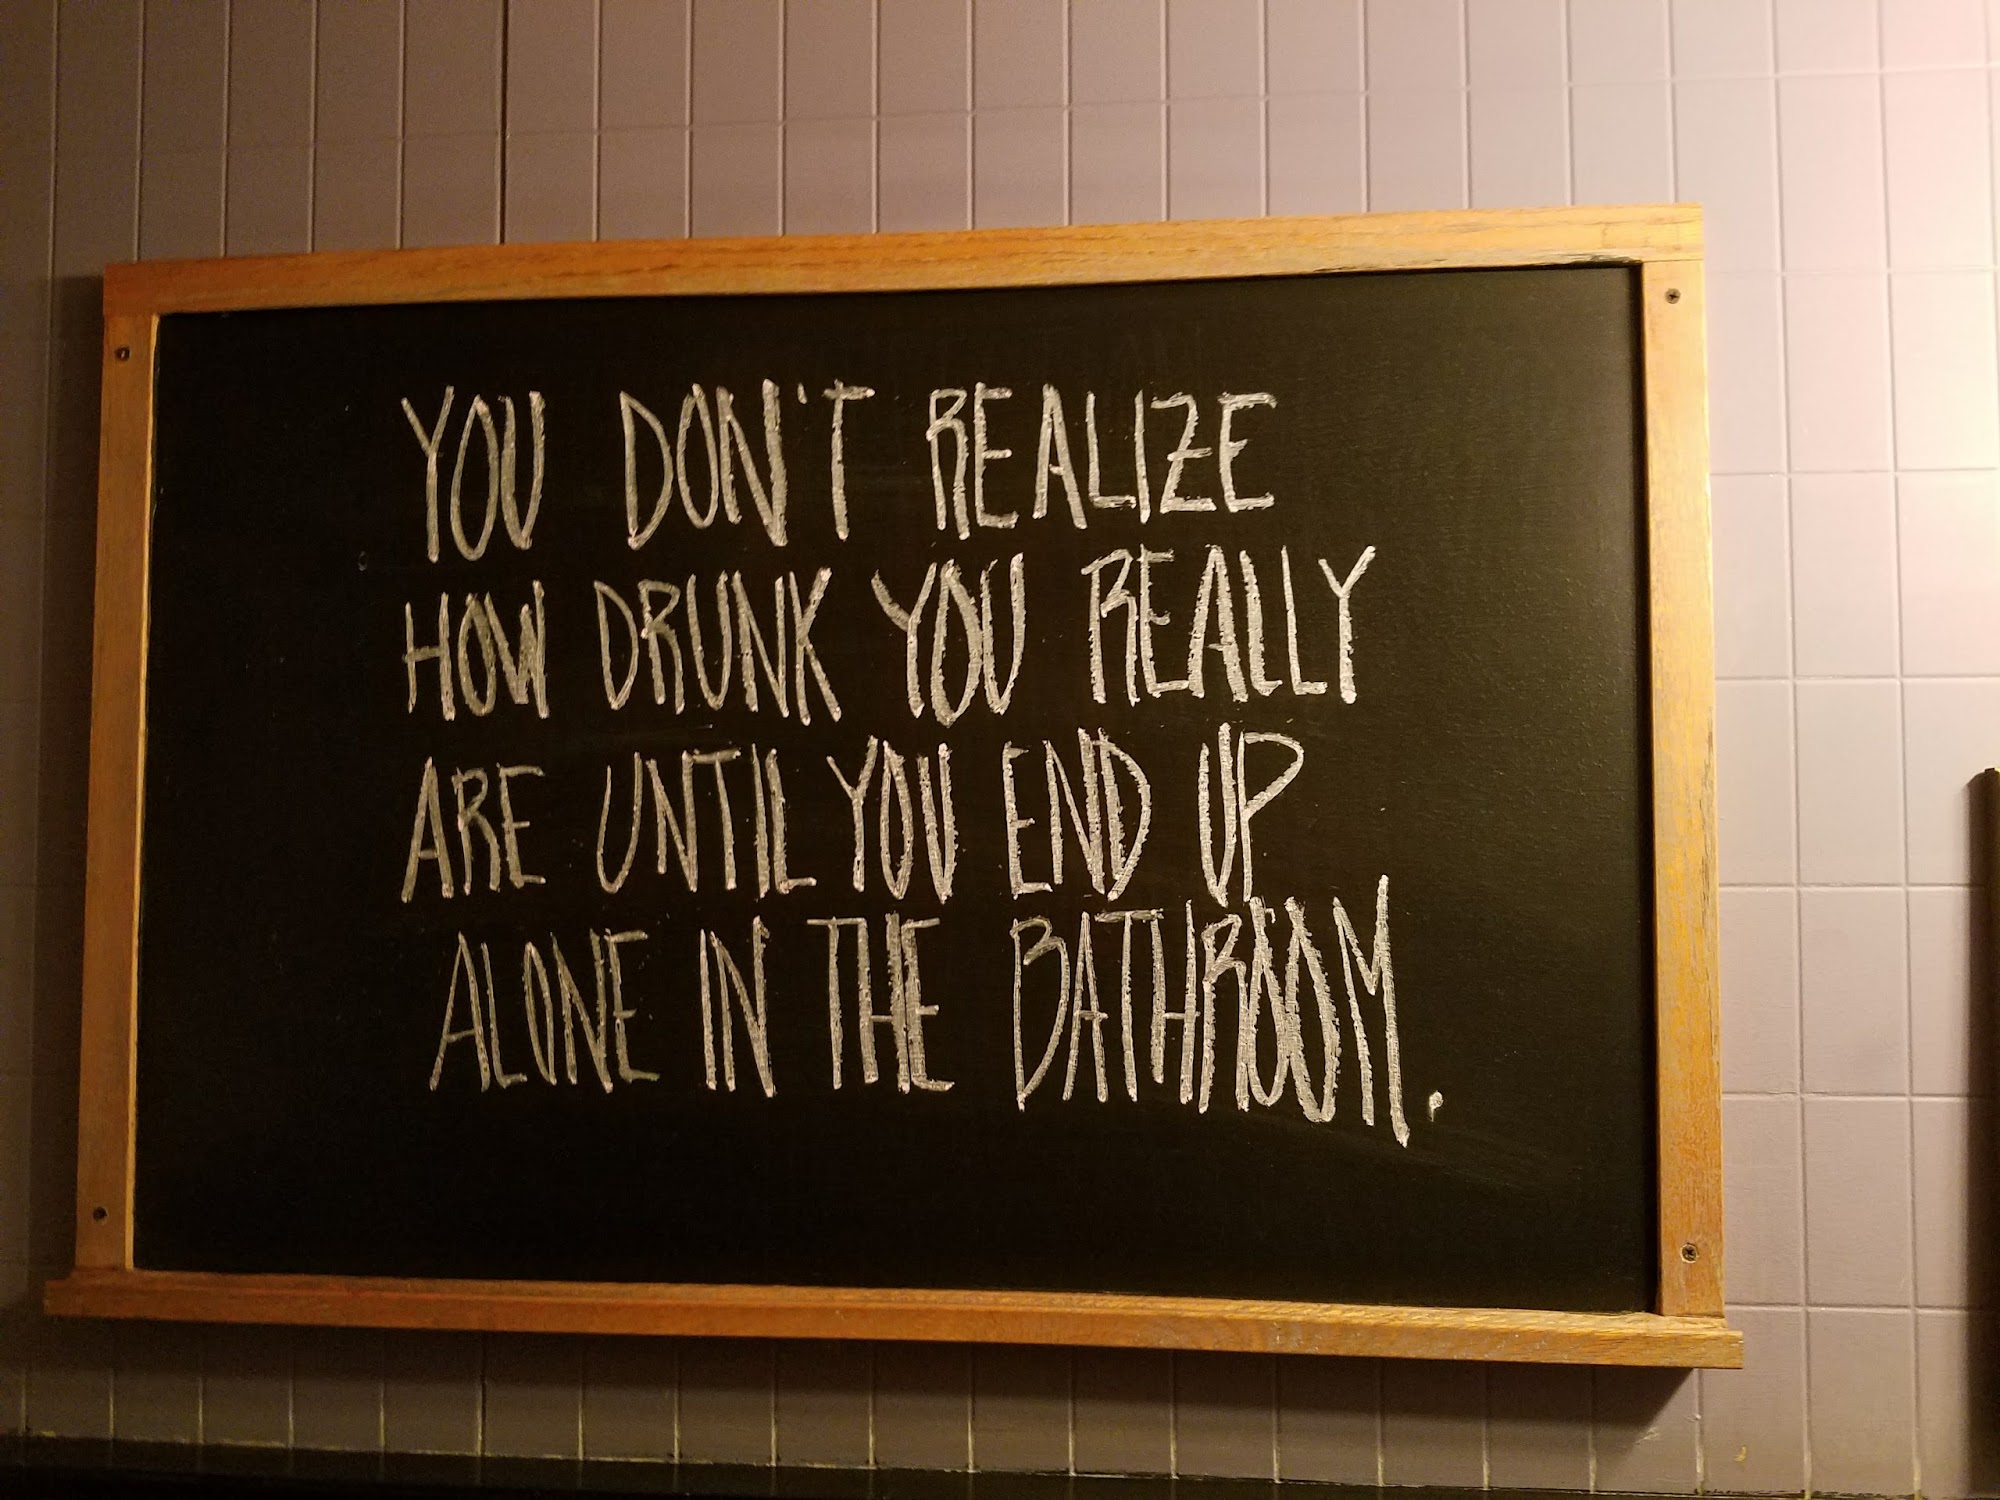 YOU DON'T REALIZE
HOW DRUNK YOU REALLY
ARE UNTIL YOU END UP
ALONE IN THE BATHROOM.